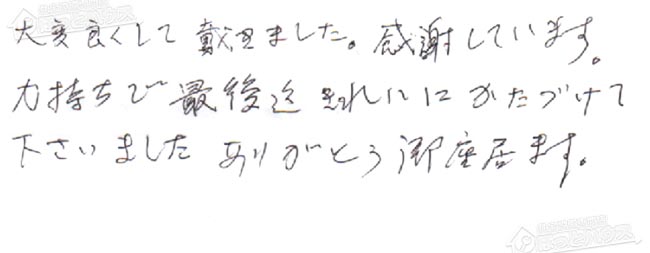 大変良くして戴きました。感謝しています。
力持ちで最後迄きれいにかたづけて
下さいました ありがとう御座居ます。